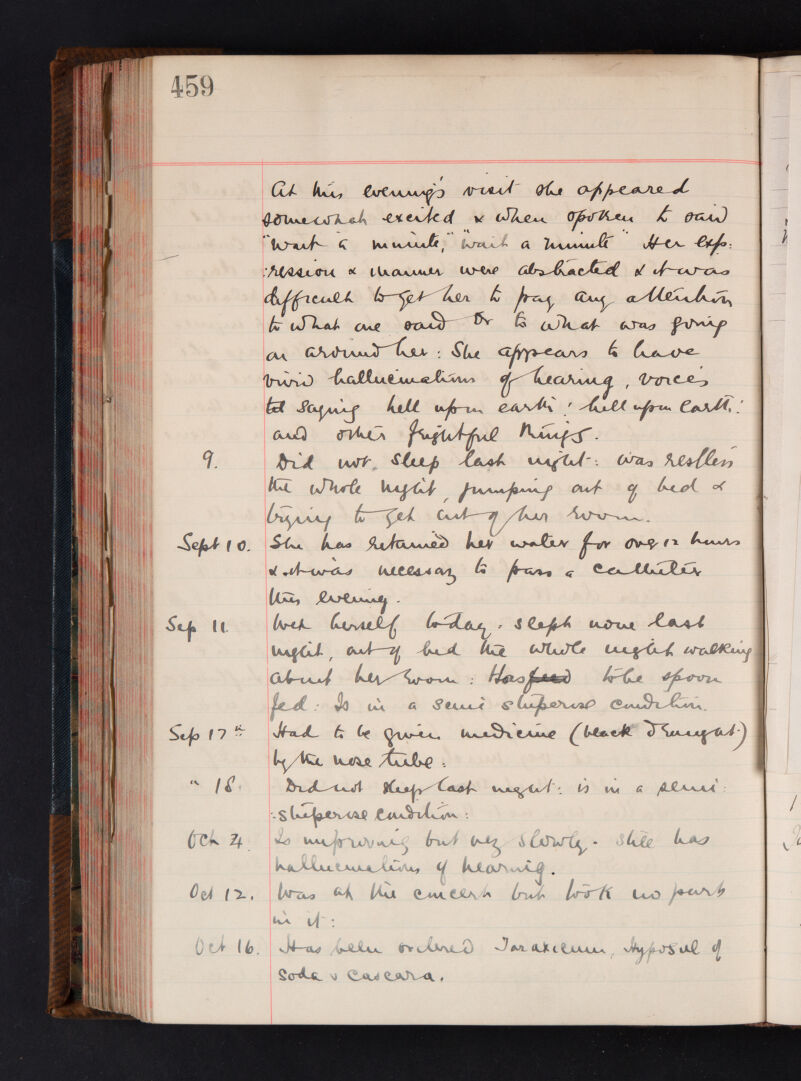 459
At this evening's visit she appeared
somewhat excited & when spoken to said
"wait a minute," "wait a minute" Her exp:
:ression & manner were abstracted & it was
difficult to get her to pay any attention
to what one said or to what was going
on around her : She appears to have
vivid hallucinations of hearing, voices
saying hell upon earth ! hell upon earth !
and other frightful things.
9. Did not sleep last night : was restless
the whole night, jumping out of bed &
trying to get out of her room.
Sept 10. She has retained her water for over 12 hours
& it was necessary to pass a catheter
this evening.
Sep 11 Wet herself to-day. slept none last
night, out of bed the whole night walking
about her room : Has to be spoon
fed : Is in a semi stuperose condition.
Sep 17th Had to be given medicine (black draught)
by the nose tube :
" 18. Did not sleep last night : is in a semi :
:stuperose condition :
Oct 4. Is improving but very slowly. still has
hallucinations of hearing.
Oct 12. Was at the concert but took no part
in it :
Oct 16. Has been ordered Taraxicum, Hyposul of
Soda & Cascara.